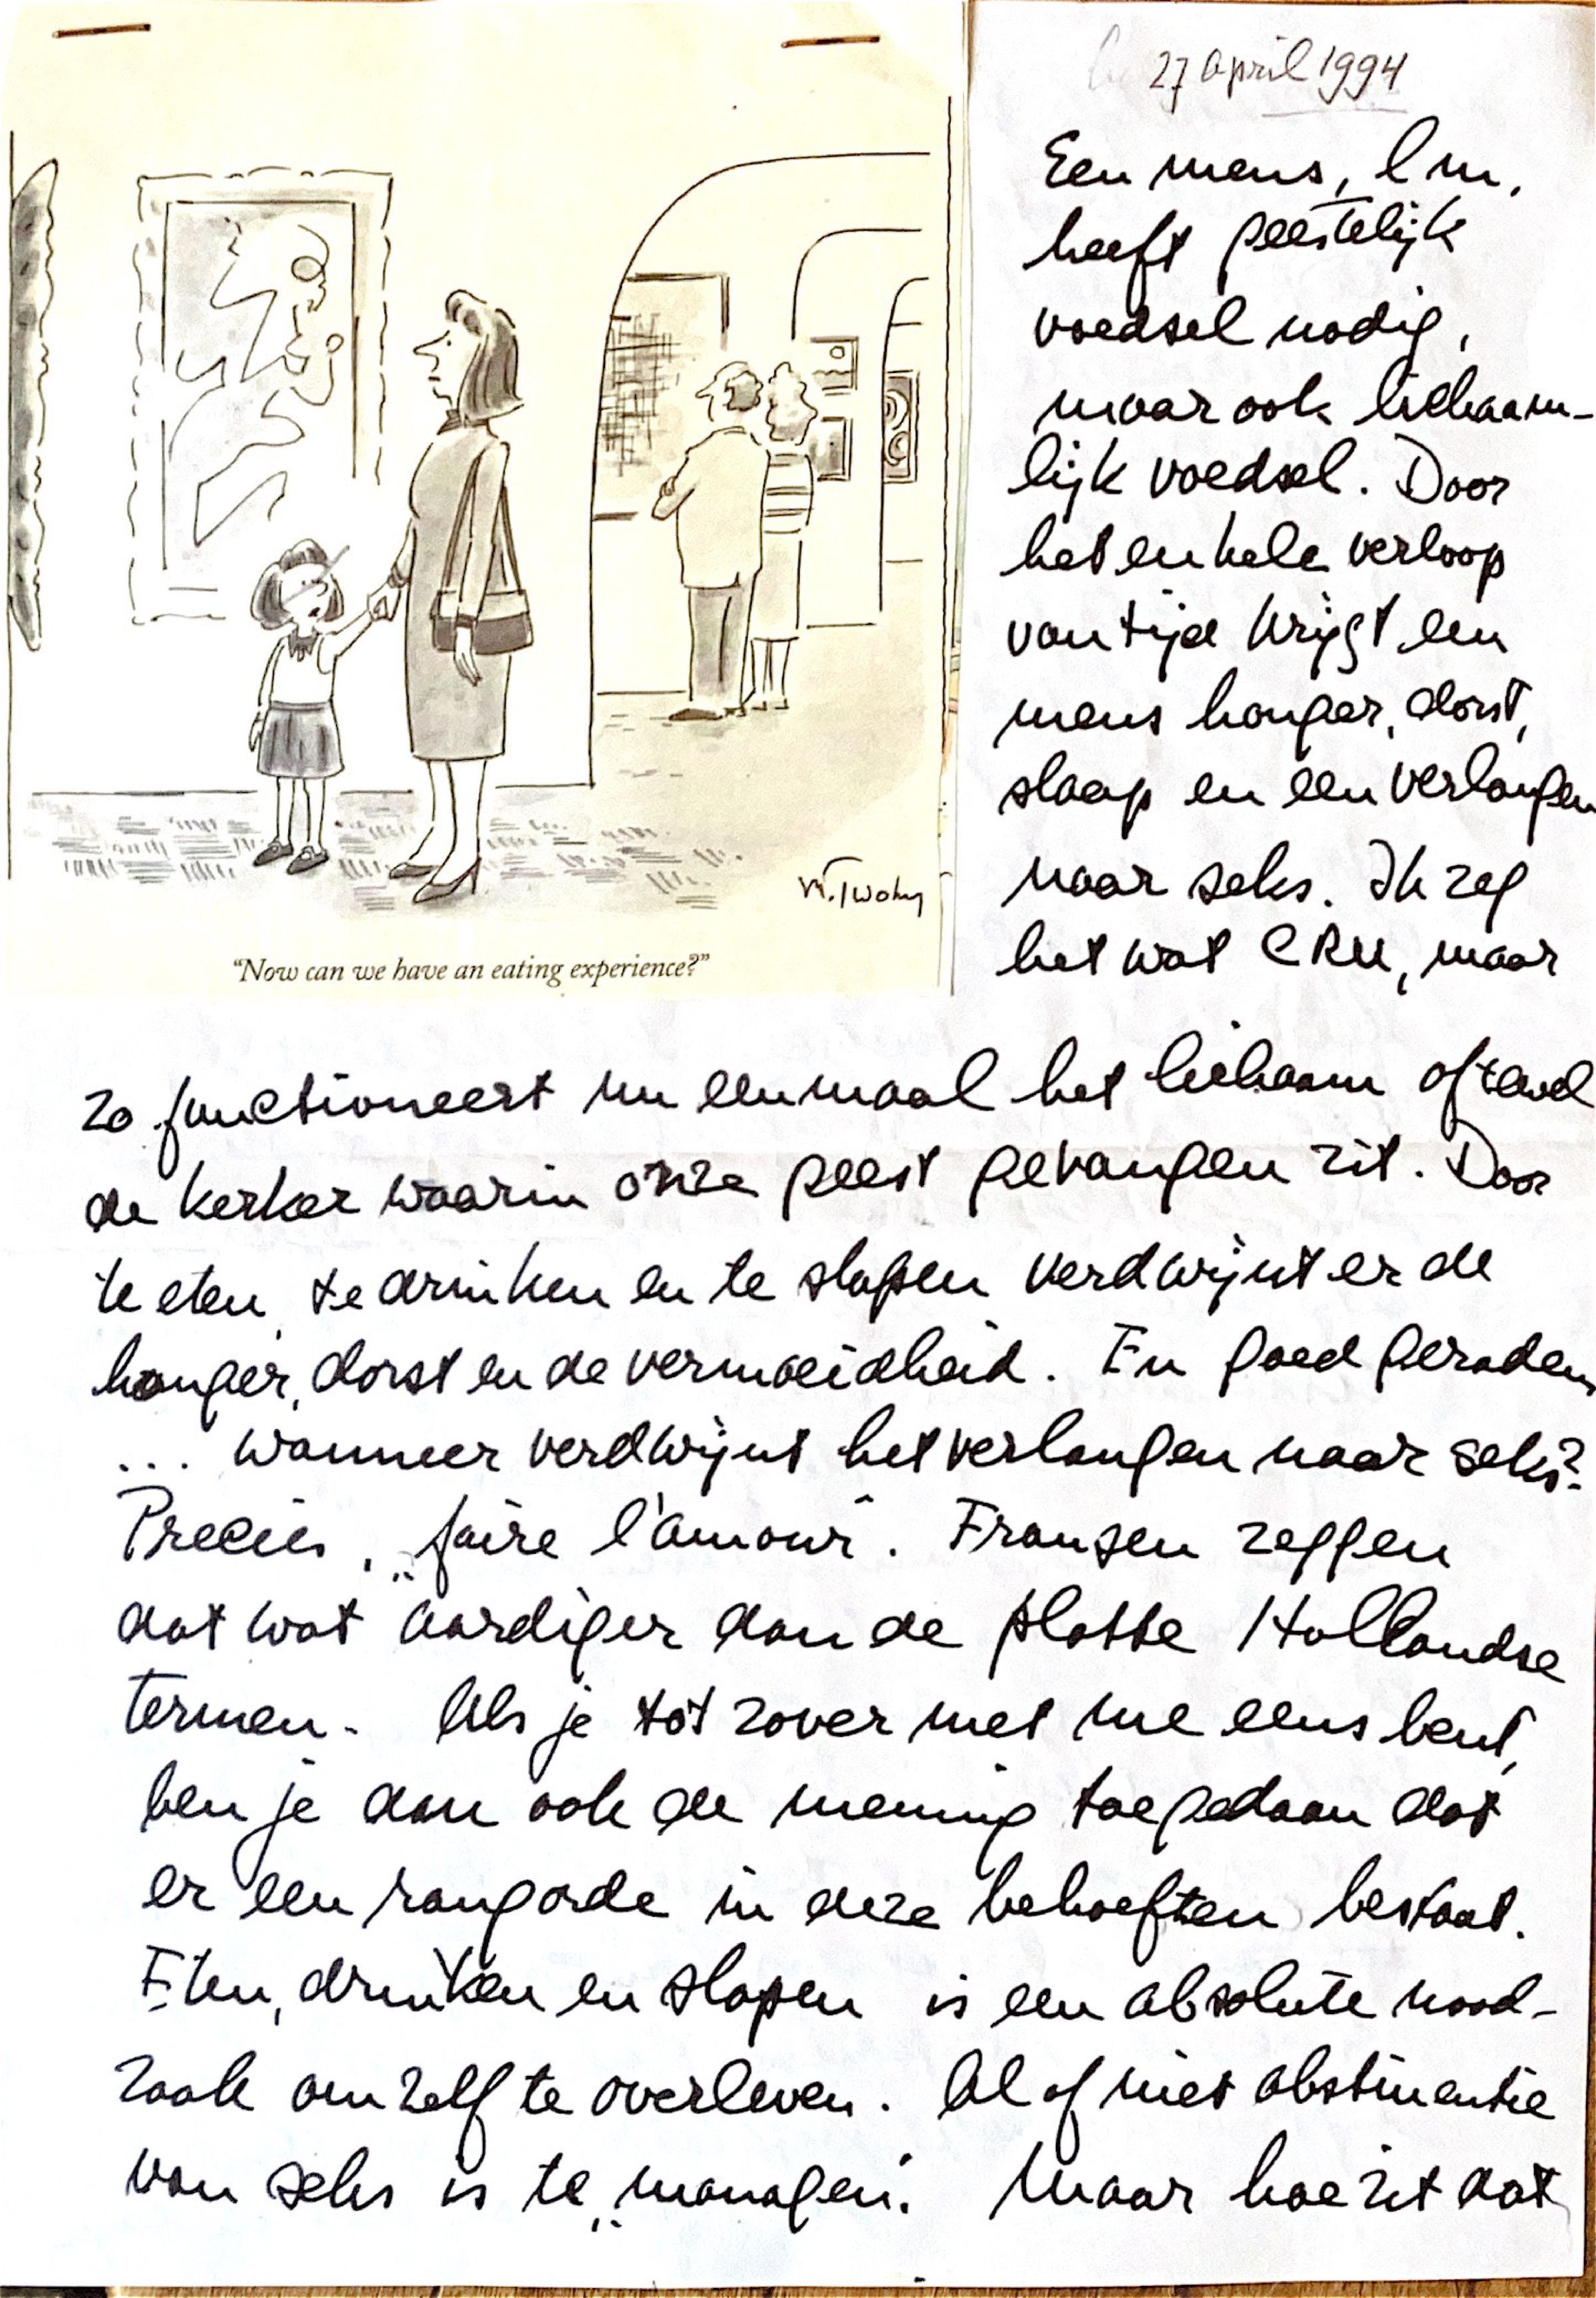 27 april 1994
Een mens, l m,
heeft geestelijk
voedsel nodig,
maar ook lichaam-
lijk voedsel. Door
het enkele verloop
van tijd krijgt een
mens honger, dorst,
slaap en een verlangen
naar seks. Ik zeg
het wat CRU, maar
M. Twohy
"Now can we have an eating experience?"
zo functioneert nu eenmaal het lichaam oftewel
de kerker waarin onze geest gevangen zit. Door
te eten, te drinken en te slapen verdwijnt er de
honger, dorst en de vermoeidheid. En goed geraden
... wanneer verdwijnt het verlangen naar seks?
Precies, „faire l'amour". Fransen zeggen
dat wat aardiger dan de platte Hollandse
termen. Als je tot zover met me eens bent,
ben je dan ook de mening toegedaan dat
er een rangorde in deze behoeften bestaat.
Eten, drinken en slapen is een absolute nood-
zaak om zelf te overleven. Al of niet abstinentie
van seks is te „managen". Maar hoe zit dat